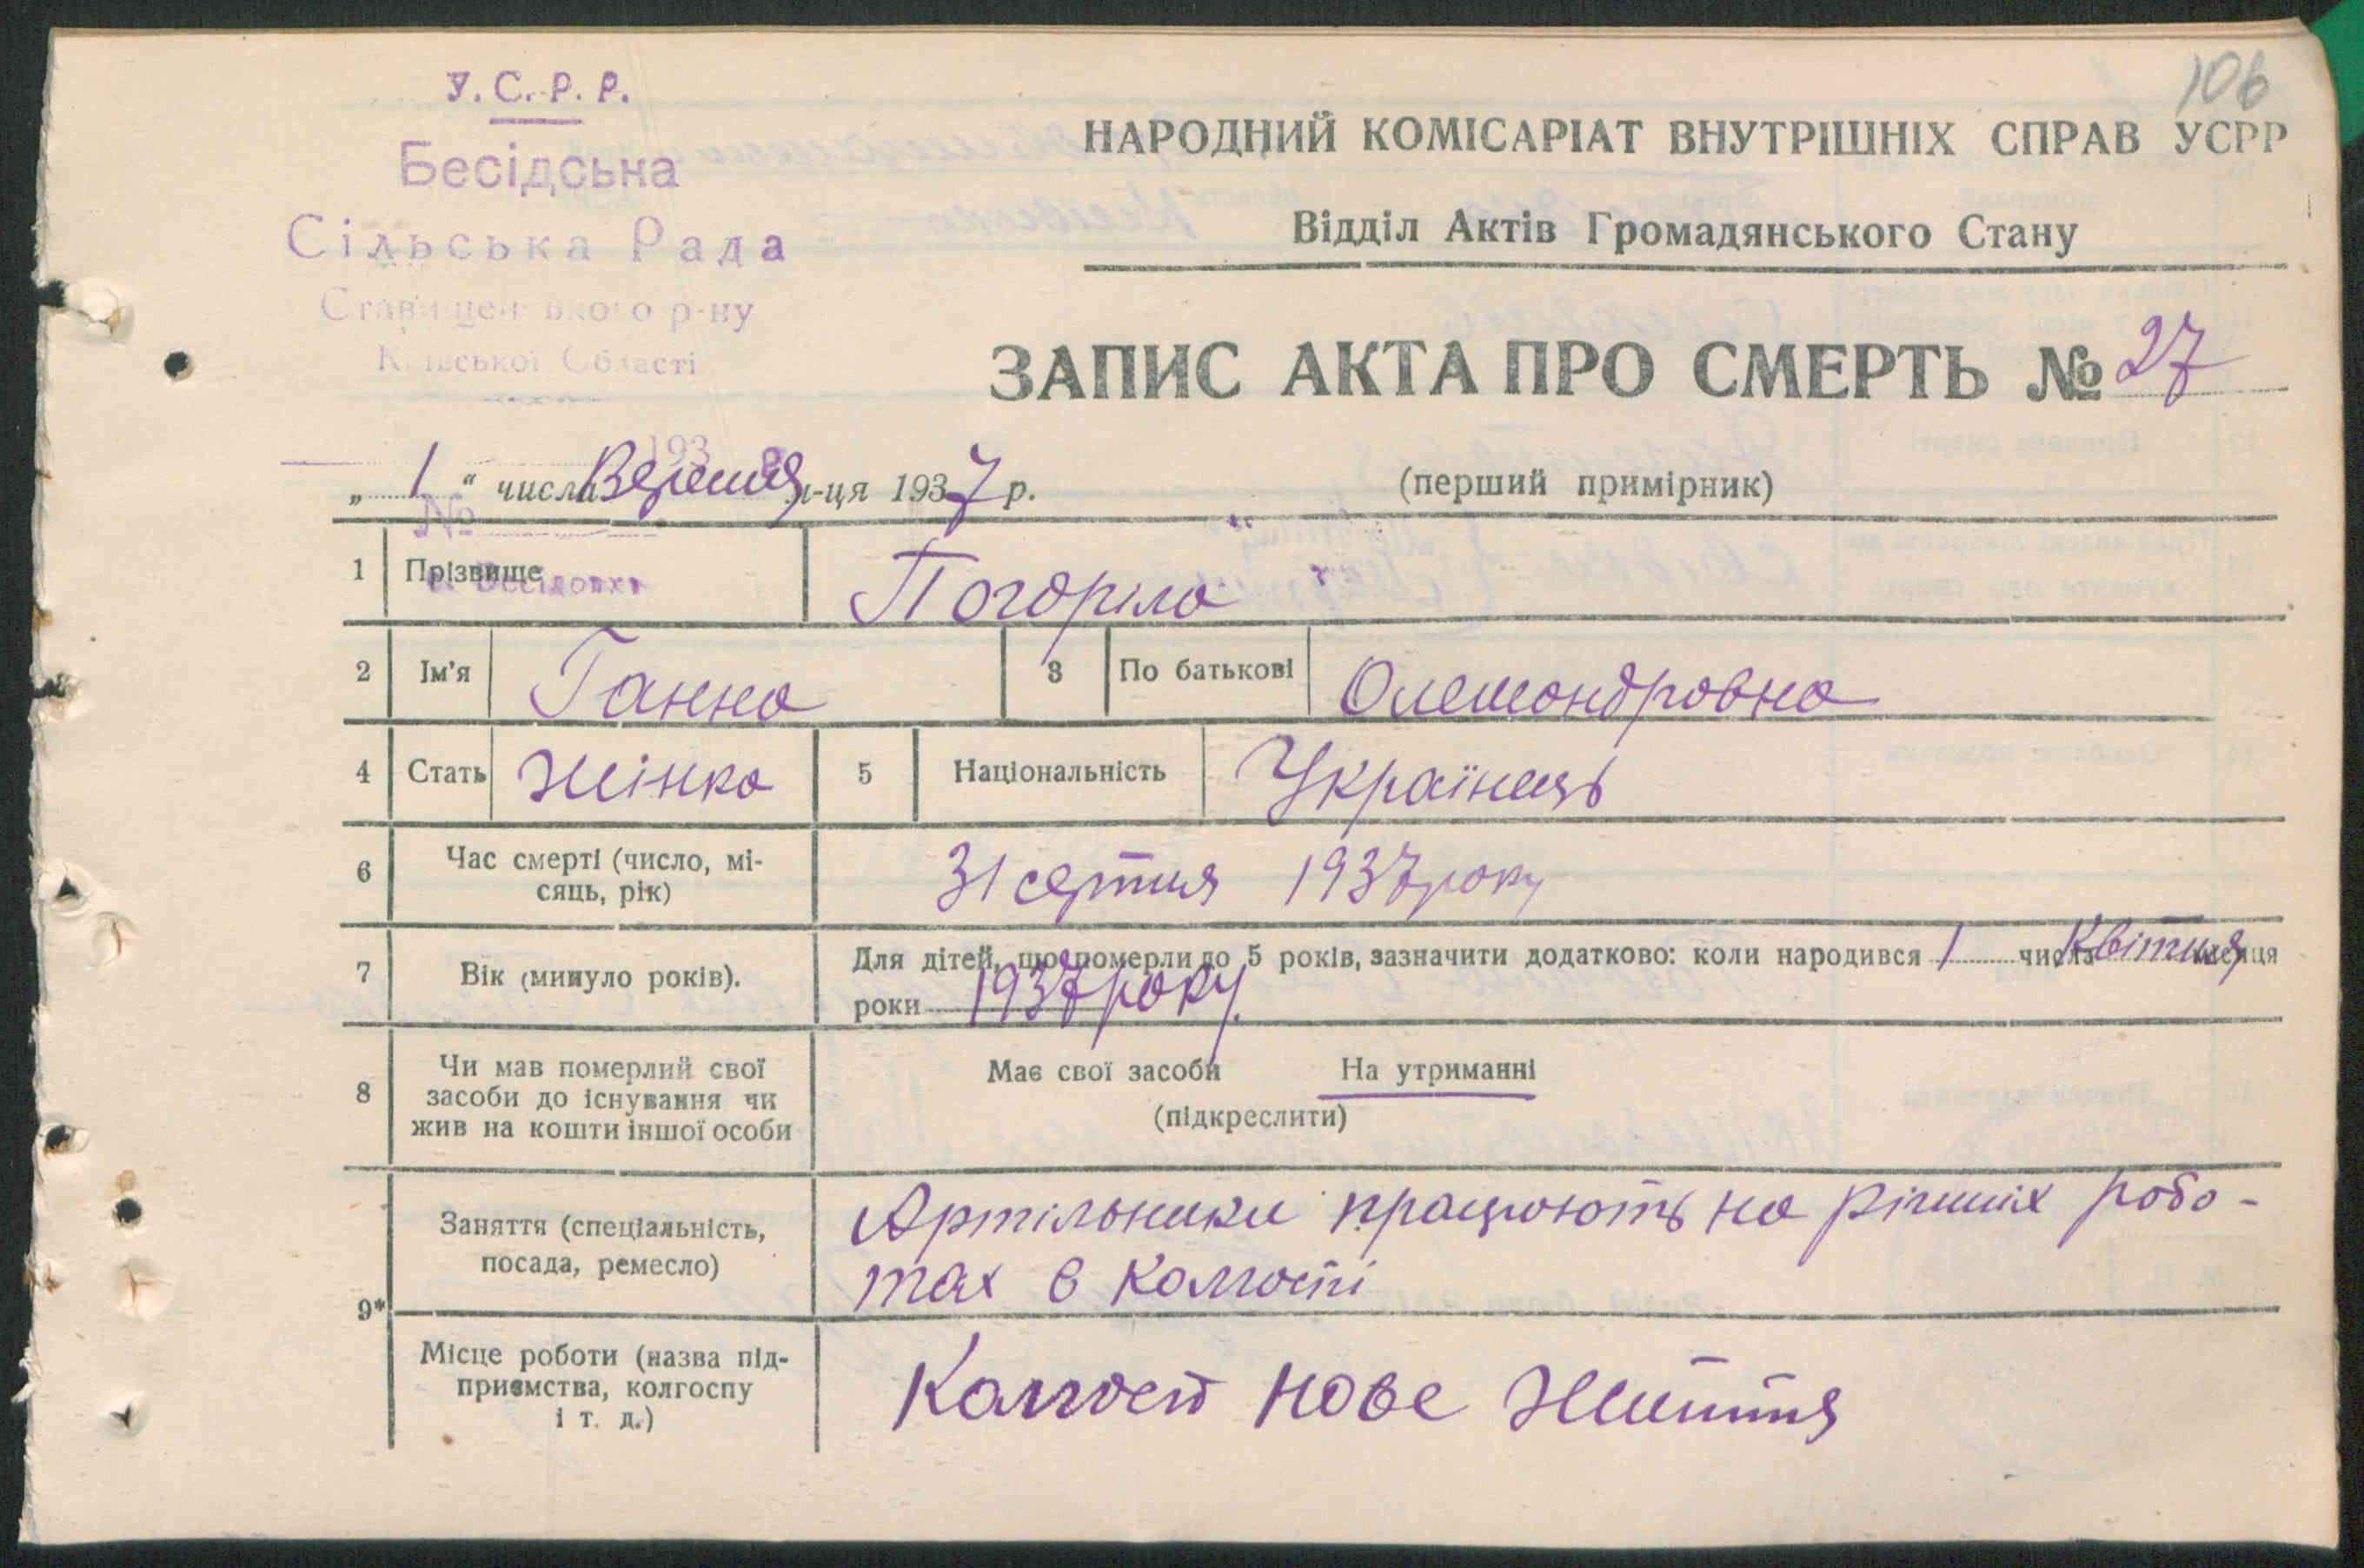 106
У.С.Р.Р.
Бесідська
Сільська Рада
Ставищенського р-ну
Київської Області
НАРОДНИЙ КОМІСАРІАТ ВНУТРІШНІХ СПРАВ УСРР
Відділ Актів Громадянського Стану
ЗАПИС АКТА ПРО СМЕРТЬ № 27
193 р.
„ 1 “ числа Вересня м-ця 1937 р.
(перший примірник)
№
1 Прізвище Погоріла
2 Ім'я Ганна 3 По батькові Олександровна
4 Стать Жінка 5 Національність Українець
6 Час смерті (число, мі-
сяць, рік) 31 серпня 1937 року
7 Вік (минуло років). Для дітей, що померли до 5 років, зазначити додатково: коли народився 1 числа Квітня місяця
роки 1937 року.
8 Чи мав померлий свої
засоби до існування чи
жив на кошти іншої особи
Має свої засоби На утриманні
(підкреслити)
9* Заняття (спеціальність,
посада, ремесло)
Артільники працюють на різних робо-
тах в Колгоспі
Місце роботи (назва під-
приємства, колгоспу
і т. д.)
Колгосп Нове Життя